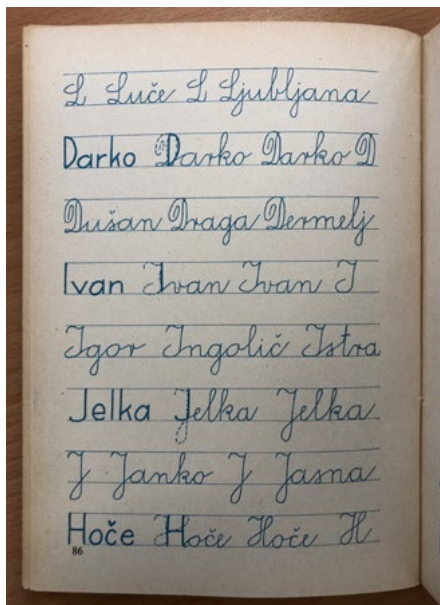 L Luče L Ljubljana
Darko Darko Darko D
Dušan Draga Dermelj
Ivan Ivan Ivan I
Igor Ingolič Istra
Jelka Jelka Jelka
J Janko J Jasna
Hoče Hoče Hoče H
86